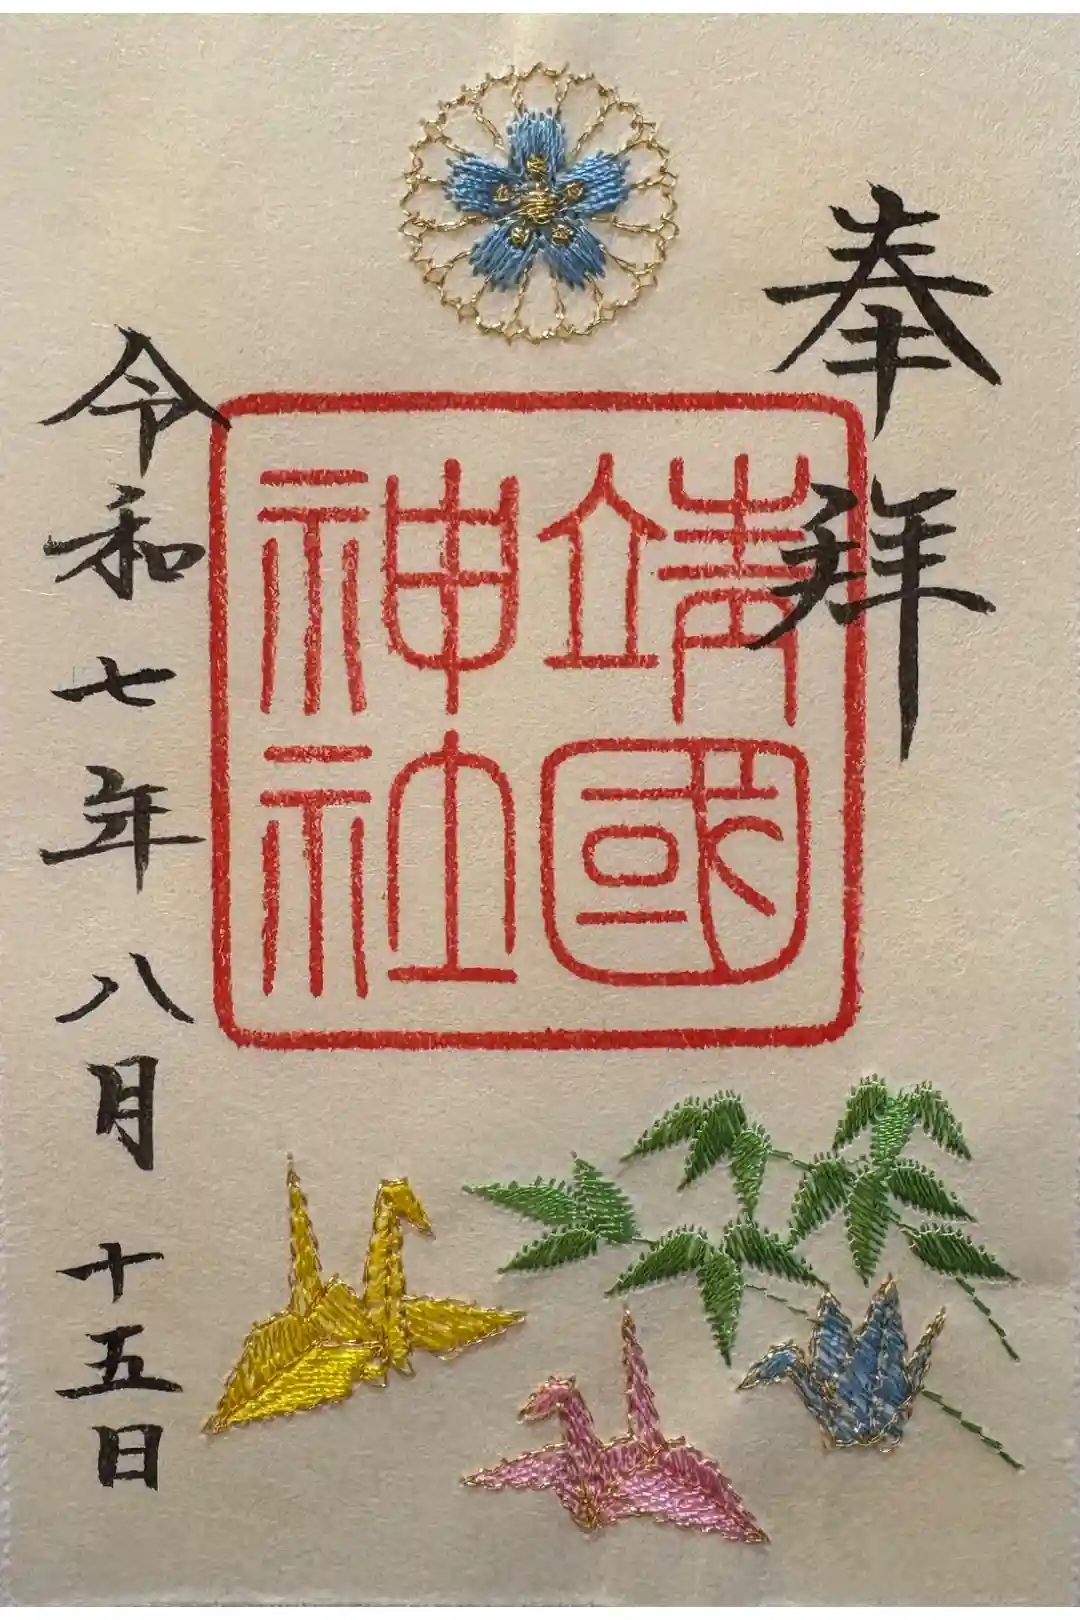 奉拝
靖國
神社
令和七年八月十五日